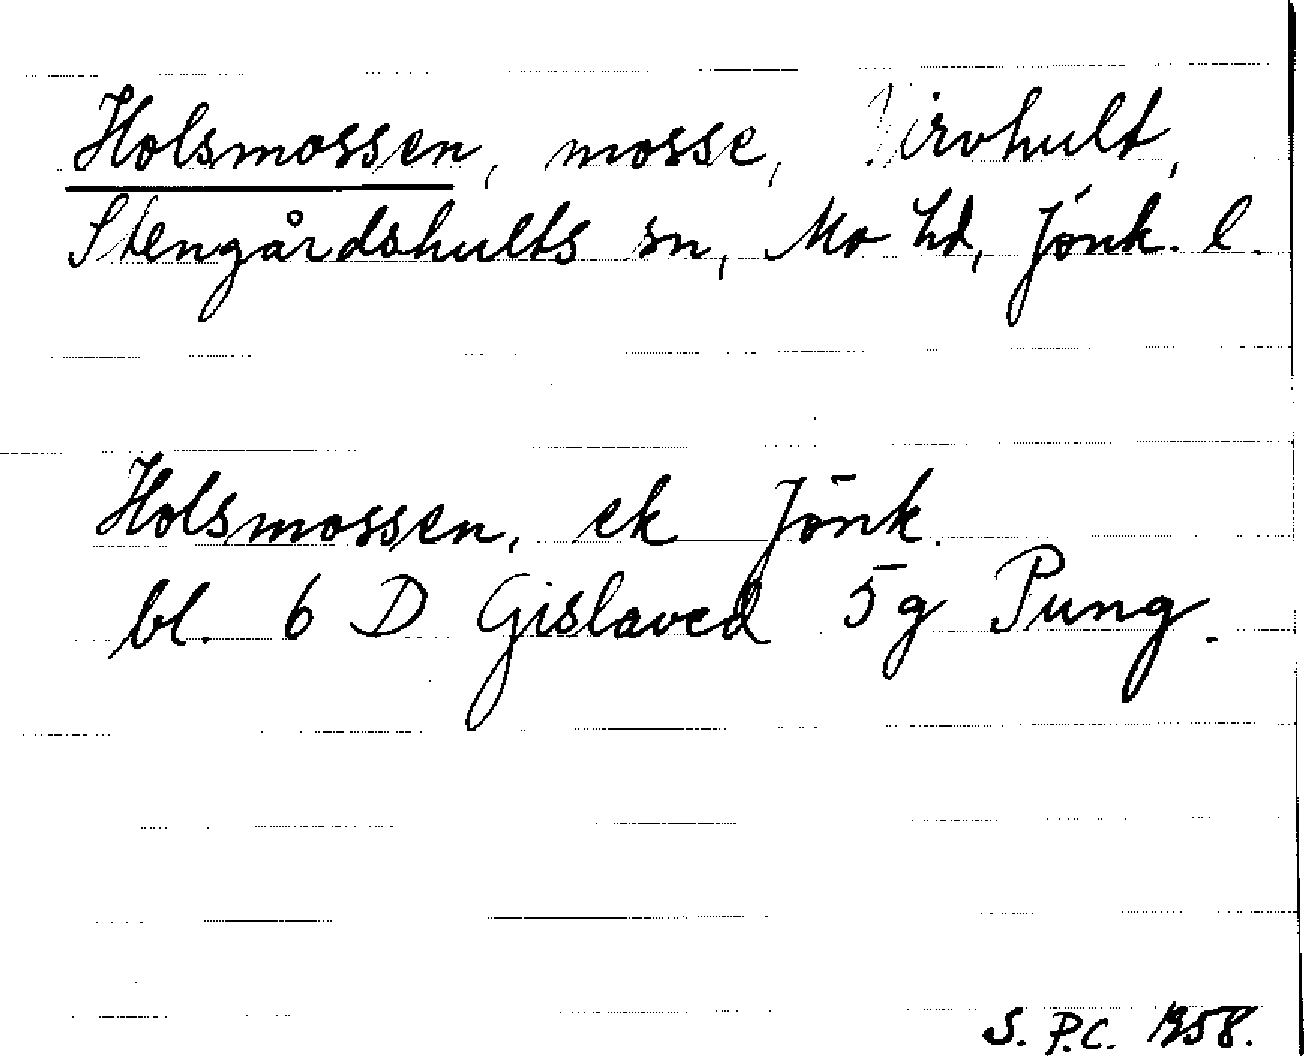 Holsmossen, mosse, Virvhult,
Stengårdshults sn, Mo hd, Jönk. l.
Holsmossen, ek Jönk.
bl. 6 D Gislaved 5g Pung.
S. P.C. 1958.